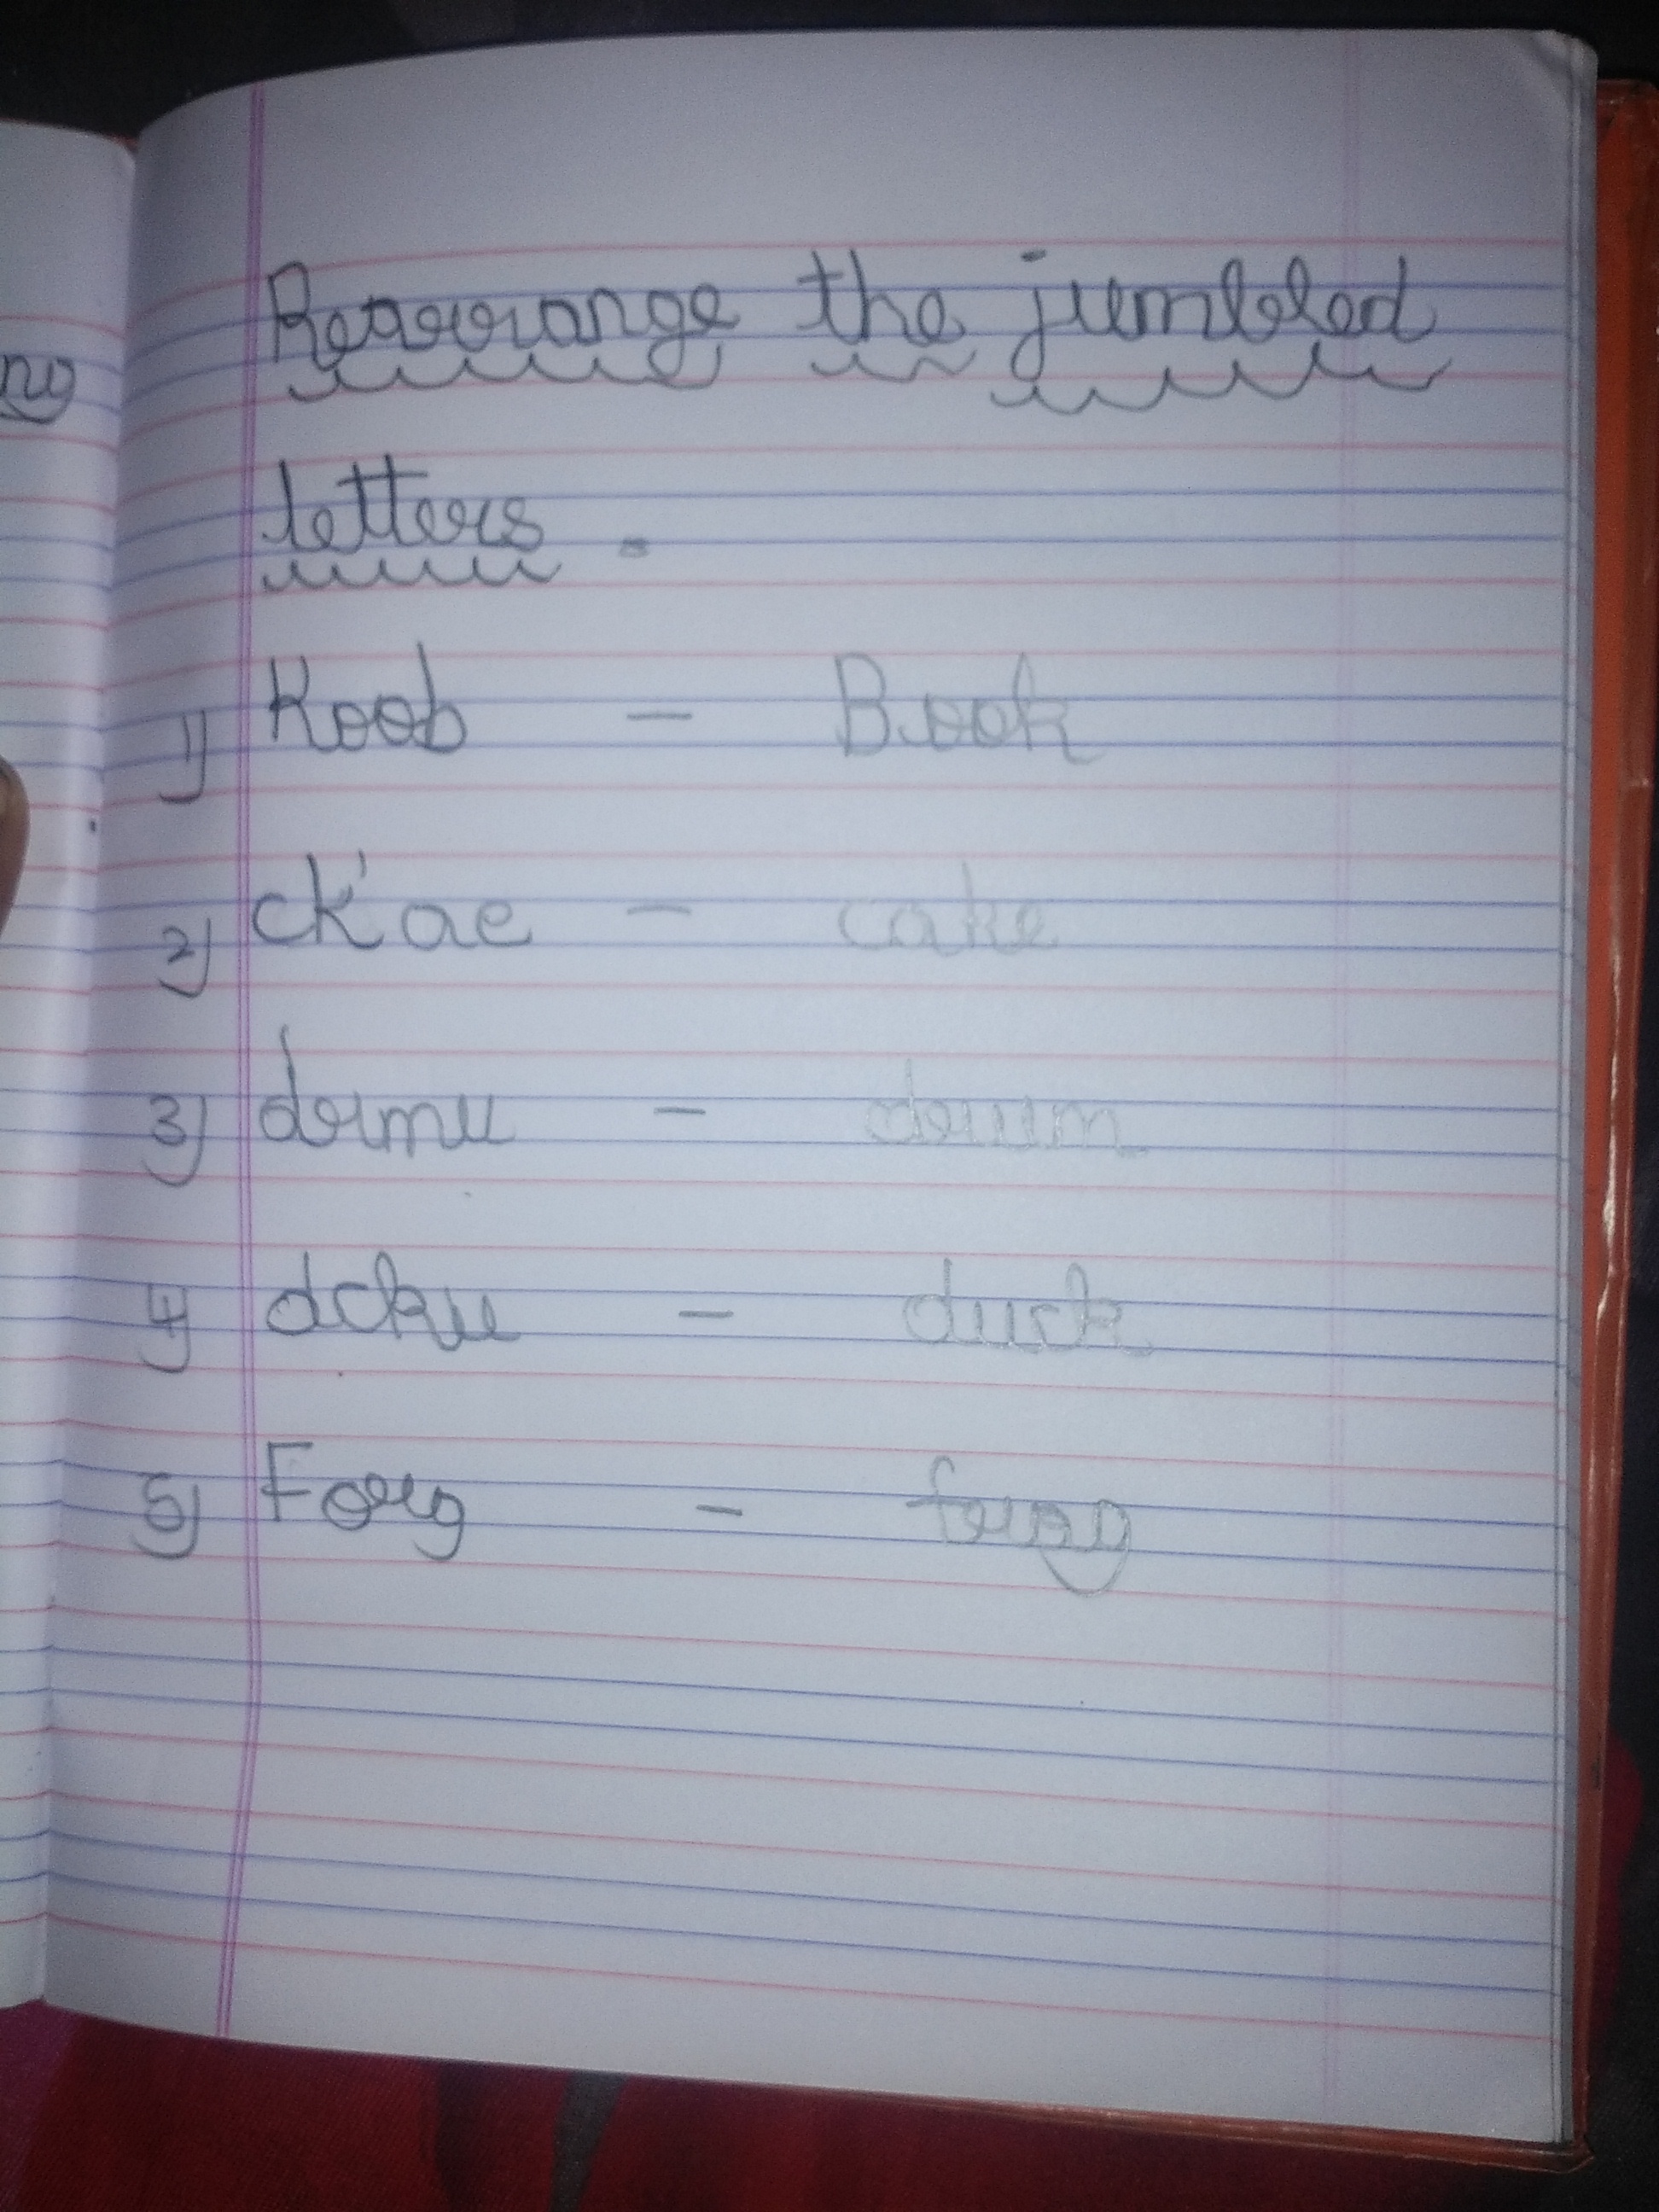 ng
Rearrange the jumbled
letters -
1) Koob - Book
2) ck'ae - cake
3) drmu - drum
4) dcku - duck
5) Forg - frog